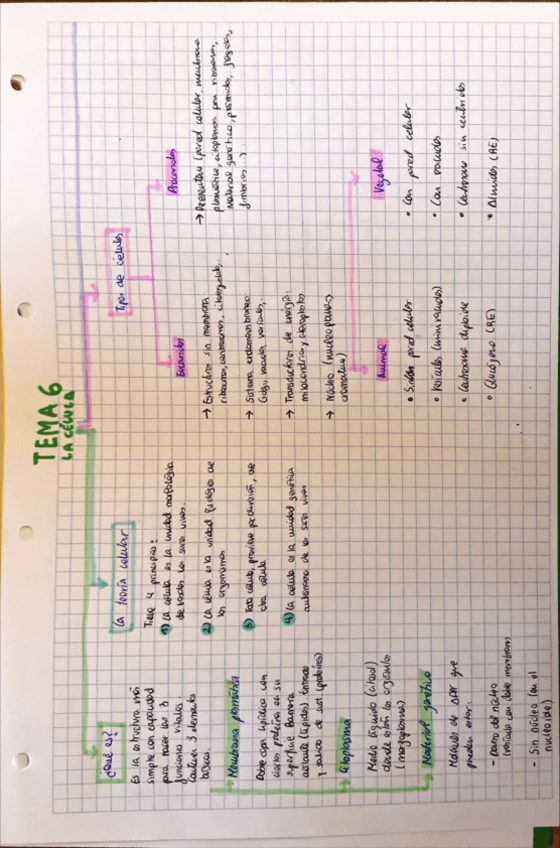 TEMA 6
LA CÉLULA
¿Qué es?
Es la estructura más
simple con capacidad
para hacer las 3
funciones vitales.
Contiene 3 elementos
básicos.
Membrana plasmática
Doble capa lipídica con
ciertas proteínas en su
superficie. Barrera
aislante (lípidos) entrada
y salida de sust. (proteínas)
Citoplasma
Medio líquido (citosol)
donde están los orgánulos
(morfoplasma)
Material genético
Moléculas de ADN que
pueden estar:
- Dentro del núcleo
(vesícula con doble membrana)
- Sin núcleo (en el
nucleoide)
La teoría celular
Tiene 4 principios:
1) La célula es la unidad morfológica
de todos los seres vivos.
2) La célula es la unidad fisiológica de
los organismos
3) Toda célula proviene por división, de
otra célula
4) La célula es la unidad genética
autónoma de los seres vivos
Tipos de células
Eucariotas
→ Estructuras sin membrana:
ribosomas, centrosomas, citoesqueleto...
→ Sistema endomembranoso:
golgi, vacuolas, vesículas,...
→ Transductores de energía:
mitocondrias y cloroplastos
→ Núcleo (nucleoplasma,
cromatina)
Procariotas
→ Presentan (pared celular, membrana
plasmática, citoplasma con ribosomas,
material genético, plásmidos, flagelos,
fimbrias...)
Animal
• Sin pared celular
• Vesículas (sin vacuolas)
• Centrosoma diplosoma
• Glucógeno (RE)
Vegetal
• Con pared celular
• Con vacuolas
• Centrosoma sin centríolos
• Almidón (RE)